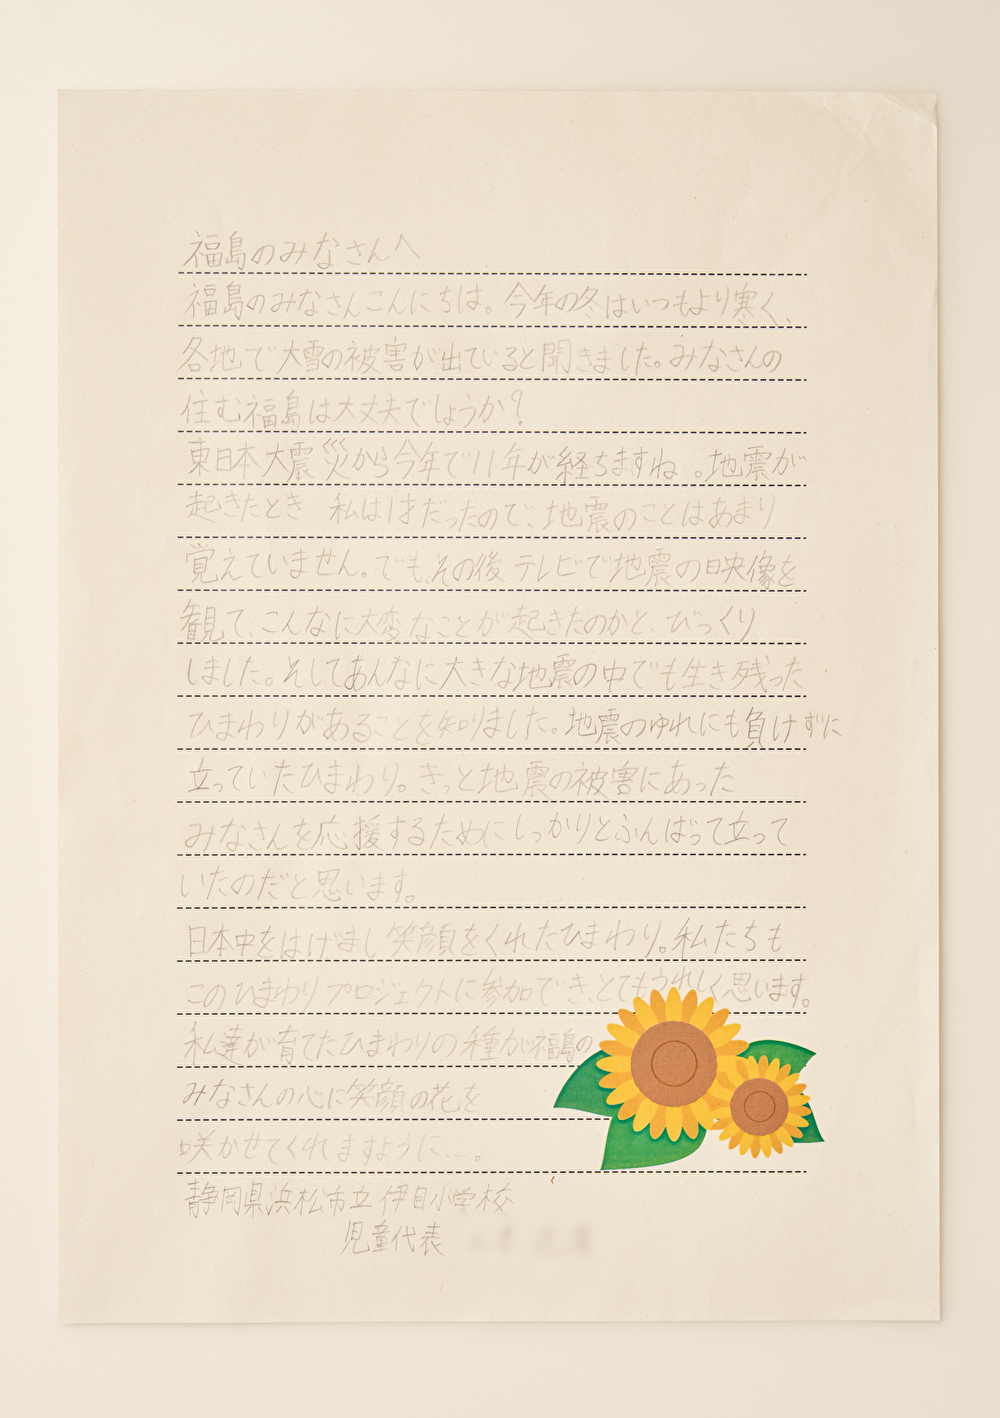 福島のみなさんへ
福島のみなさんこんにちは。今年の冬はいつもより寒く、
各地で大雪の被害が出ていると聞きました。みなさんの
住む福島は大丈夫でしょうか？
東日本大震災から今年で11年が経ちますね。地震が
起きたとき 私は1才だったので、地震のことはあまり
覚えていません。でも、その後テレビで地震の映像を
観て、こんなに大変なことが起きたのかと、びっくり
しました。そしてあんなに大きな地震の中でも生き残った
ひまわりがあることを知りました。地震のゆれにも負けずに
立っていたひまわり。きっと地震の被害にあった
みなさんを応援するためにしっかりとふんばって立って
いたのだと思います。
日本中をはげまし笑顔をくれたひまわり。私たちも
このひまわりプロジェクトに参加でき、とてもうれしく思います。
私達が育てたひまわりの種が福島の
みなさんの心に笑顔の花を
咲かせてくれますように…。
静岡県浜松市立伊目小学校
児童代表